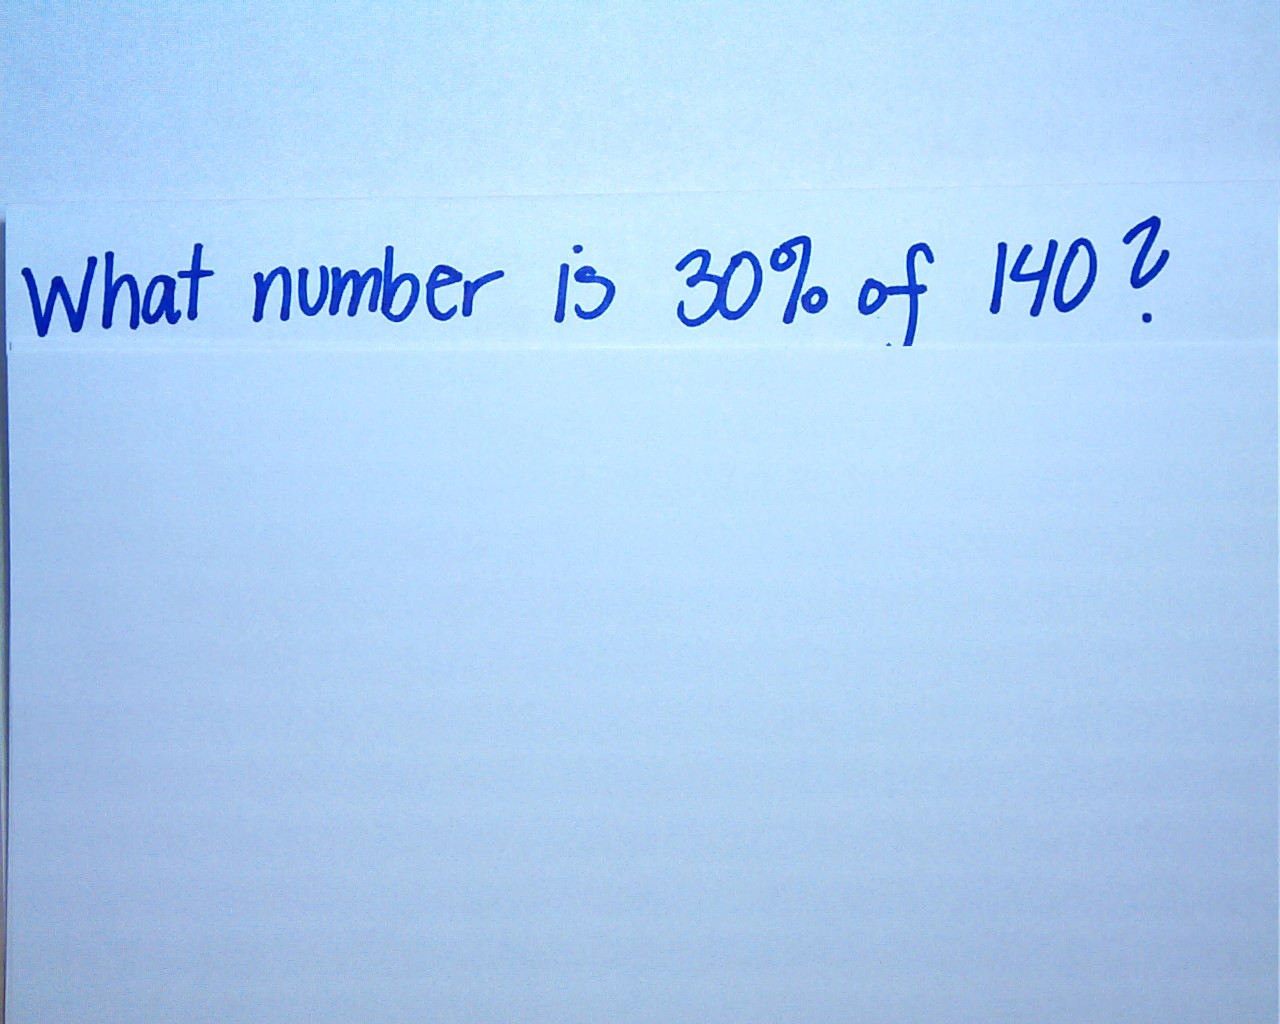 What number is 30% of 140?